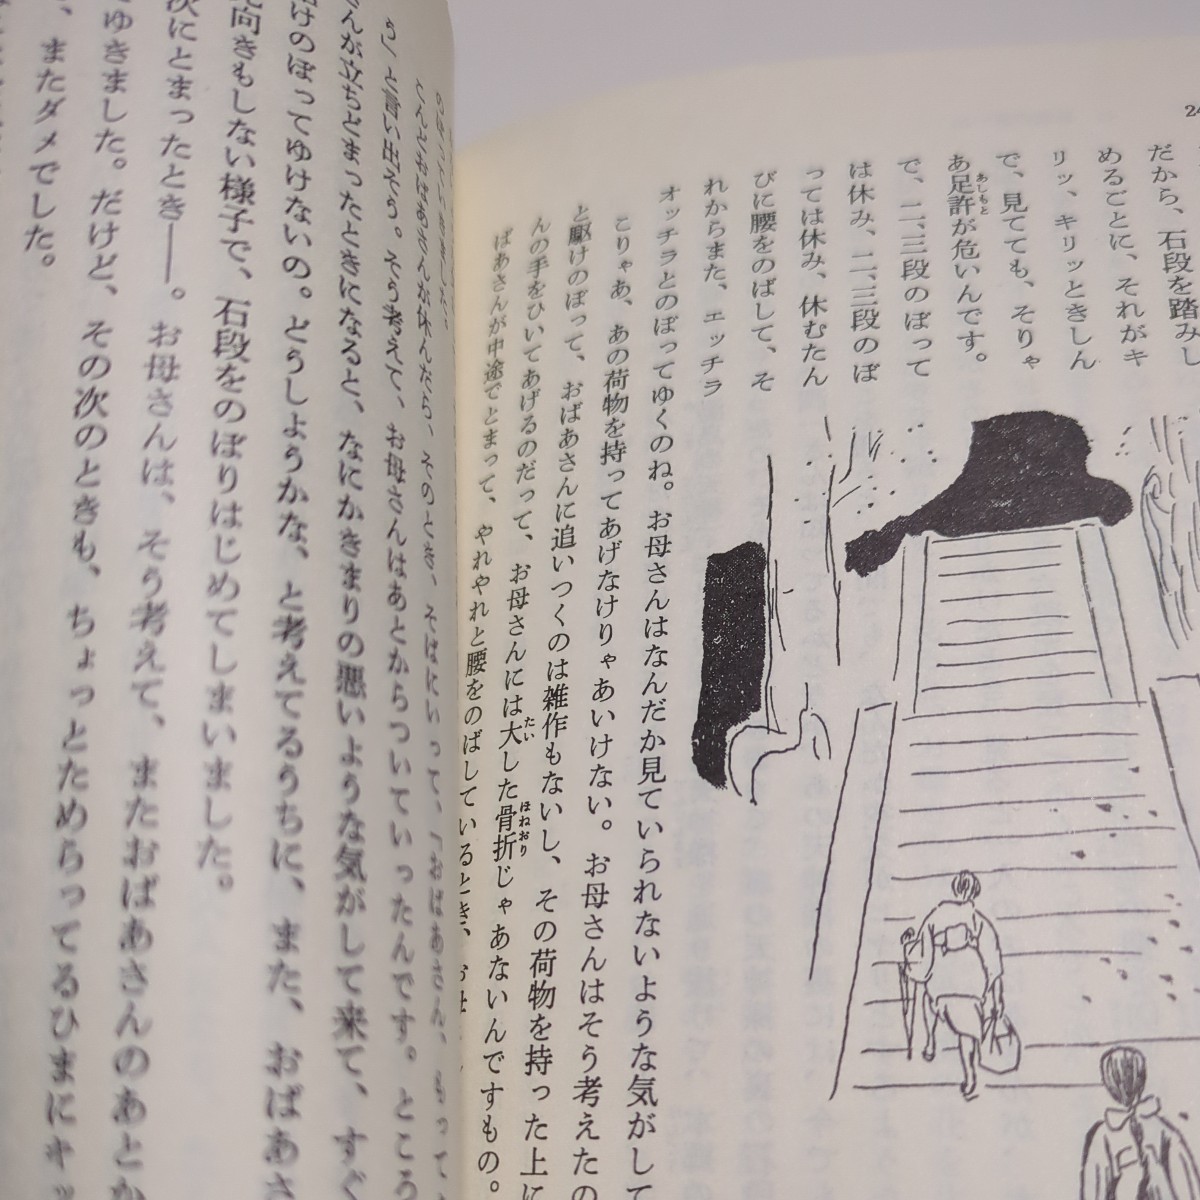 24
だから、石段を踏みし
めるごとに、それがキ
リッ、キリッときしん
で、見てても、そりゃ
あ足許が危いんです。
あしもと
で、二、三段のぼって
は休み、二、三段のぼ
っては休み、休むたん
びに腰をのばして、そ
れからまた、エッチラ
オッチラとのぼってゆくのね。お母さんはなんだか見ていられないような気がして
こりゃあ、あの荷物を持ってあげなけりゃあいけない。お母さんはそう考えたの
と駆けのぼって、おばあさんに追いつくのは雑作もないし、その荷物を持った上に
んの手をひいてあげるのだって、お母さんには大した骨折じゃあないんですもの。
たい
ほねおり
ばあさんが中途でとまって、やれやれと腰をのばしているとき、お母
こんどおばあさんが休んだら、そのとき、そばにいって、「おばあさん、もって
う」と言い出そう。そう考えて、お母さんはあとからついていったんです。ところ
んが立ちどまったときになると、なにかきまりの悪いような気がして来て、すぐ
けのぼってゆけないの。どうしようかな、と考えてるうちに、また、おばあさ
向きもしない様子で、石段をのぼりはじめてしまいました。
次にとまったとき――。お母さんは、そう考えて、またおばあさんのあとか
てゆきました。だけど、その次のときも、ちょっとためらってるひまにキッ
、またダメでした。